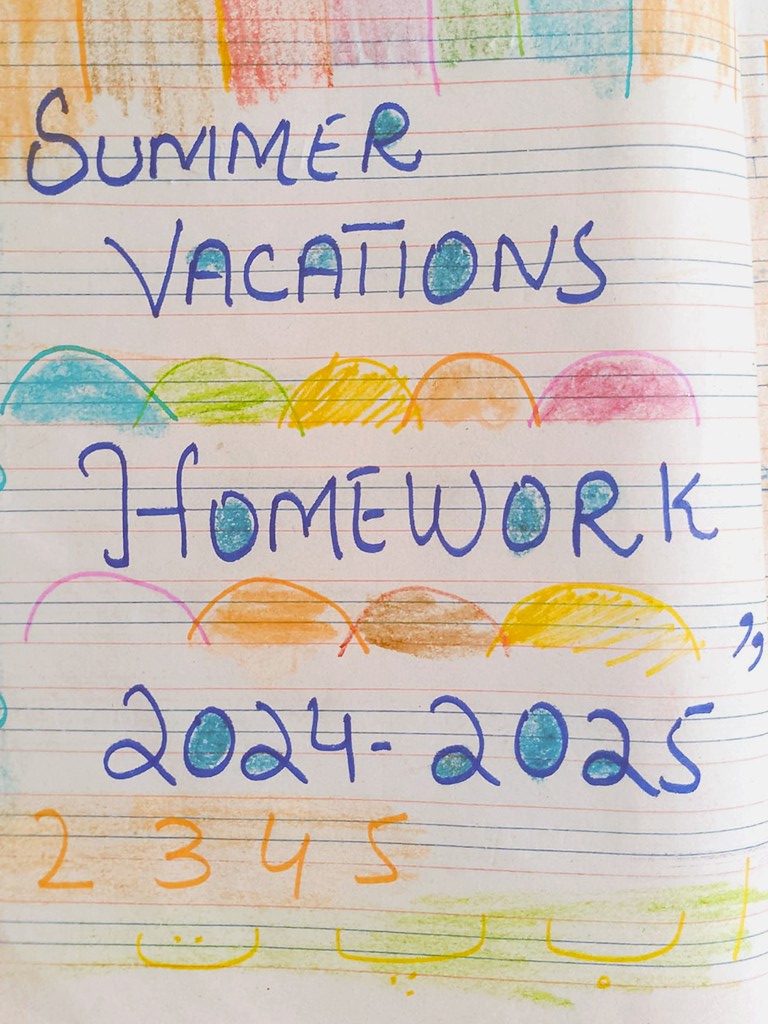 SUMMER
VACATIONS
HOMEWORK
,,
2024-2025
2 3 4 5
ا ب پ ت